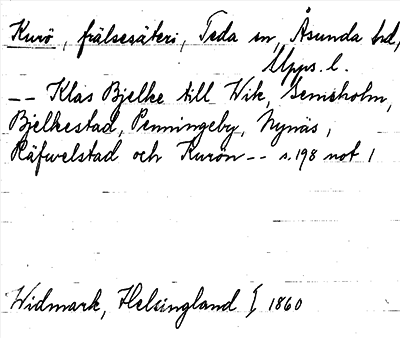 Kurö, frälsesäteri, Teda sn, Åsunda hd,
Upps. l.
-- Klas Bjelke till Wik, Gemsholm,
Bjelkestad, Penningeby, Nynäs,
Räfwelstad och Kurön -- s. 198 not 1
Widmark, Helsingland I, 1860